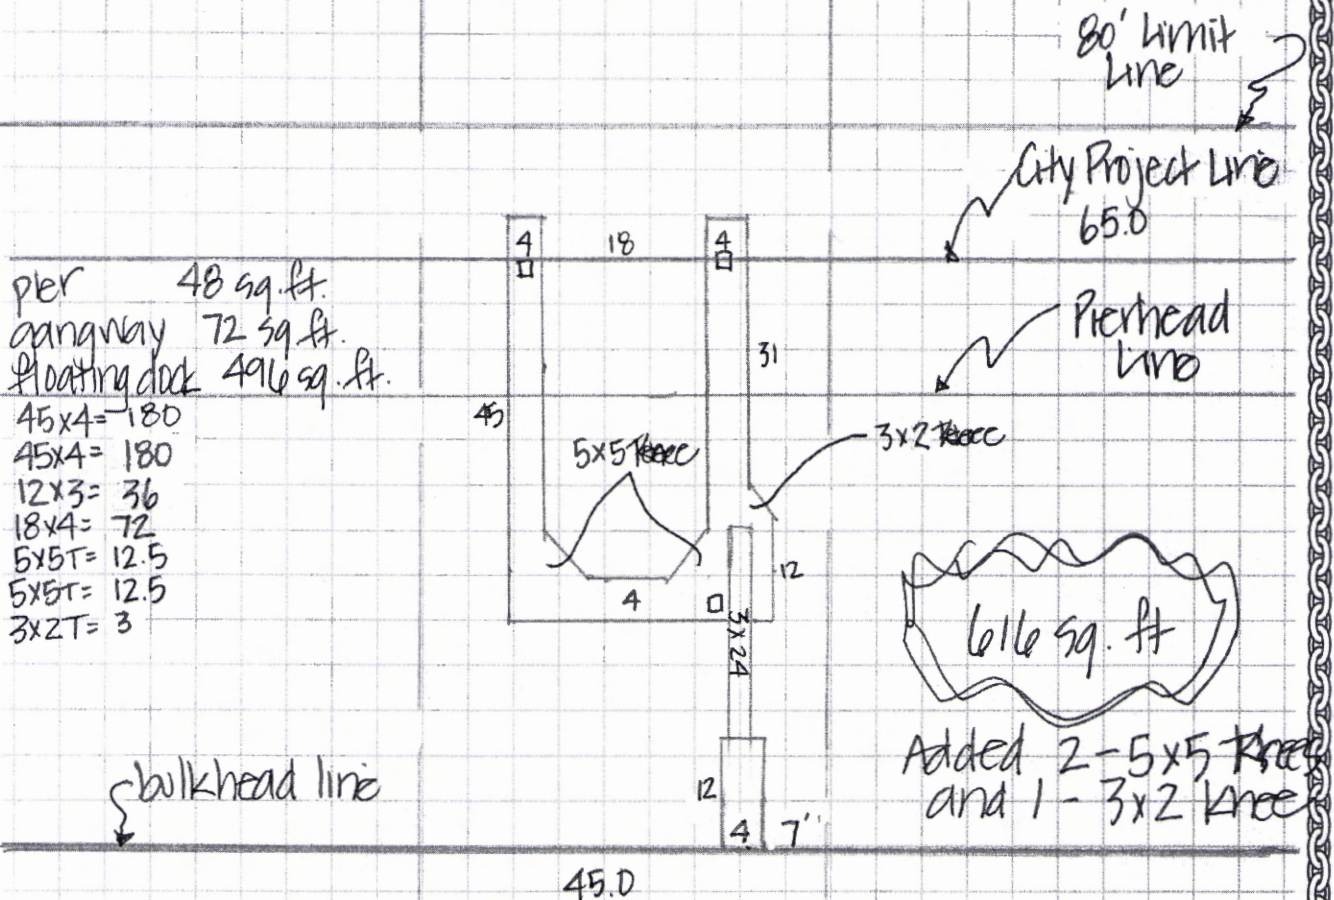 80' Limit
Line
City Project Line
65.0
4 18 4
pier 48 sq.ft.
gangway 72 sq.ft.
floating dock 496 sq.ft.
45x4= 180
45x4= 180
12x3= 36
18x4= 72
5x5T= 12.5
5x5T= 12.5
3x2T= 3
Pierhead
Line
31
45
5x5
3x2
12
4
3x24
616 sq. ft
Added 2-5x5 Knees
and 1-3x2 Knee
bulkhead line
12
4 7''
45.0